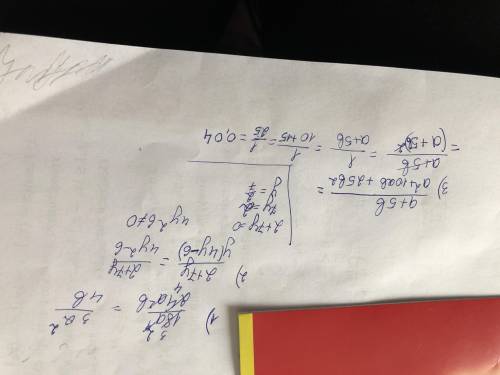 1) 18a³/24ab = 3a²/4b
2) 2+7y/y(4y-6) = 2+7y/4y²-6
2+7y=0 4y²-6≠0
7y=-2
y=2/7
3) a+5b/a²+10ab+25b² =
= a+5b/(a+5b)² = 1/a+5b = 1/10+15 = 1/25 = 0,04